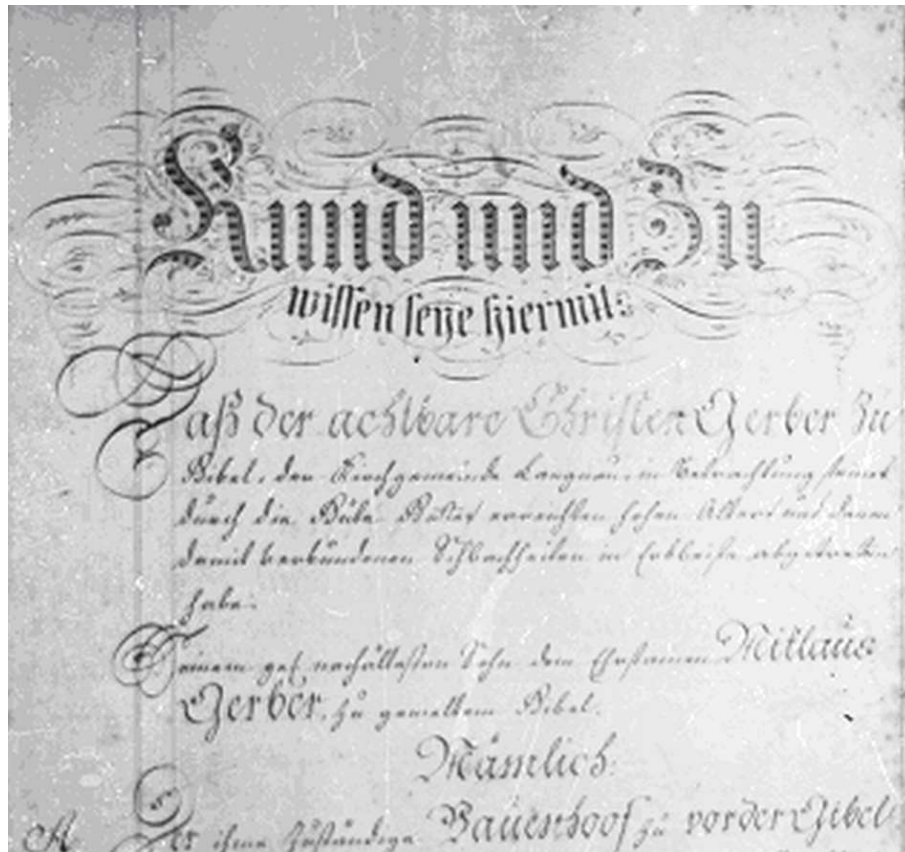 Kund und Zu
wissen seye hiermit:
Daß der achtbare Christen Gerber Zu
Gibel, der Kirchgemeinde Langnau, in Betrachtung seines
durch die Güte Gottes erreichten hohen Alters und denen
damit verbundenen Schwachheiten in Erbleise abgetreten
habe:
Seinem zweitältesten Sohn dem Ehrsamen Niklaus
Gerber, zu gemeltem Gibel.
Nämlich:
A Der ihme zuständige Bauernhoof zu vorder Gibel